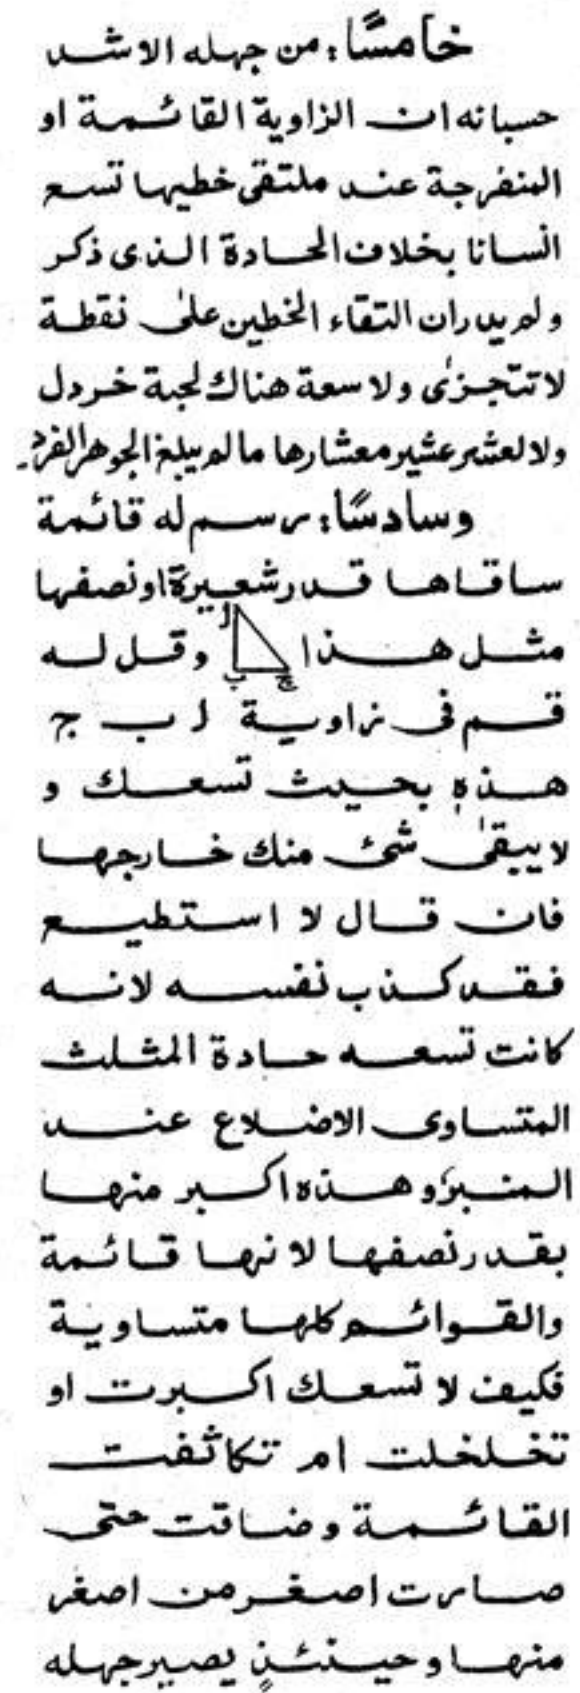 خامسًا: من جهله الاشد
حسبانه ان الزاوية القائمة او
المنفرجة عند ملتقى خطيها تسع
انسانا بخلاف الحادة الذى ذكر
ولم يدر ان التقاء الخطين على نقطة
لا تتجزى ولا سعة هناك لحبة خردل
ولا لعشر عشير معشارها ما لم يبلغ الجوهر الفرد.
وسادسًا: رسم له قائمة
ساقاها قدر شعيرة او نصفها
مثل هذا ا ب ج وقل له
قم فى زاوية ا ب ج
هذه بحيث تسعك و
لا يبقى شئ منك خارجها
فان قال لا استطيع
فقد كذب نفسه لانه
كانت تسعه حادة المثلث
المتساوى الاضلاع عند
المنبر وهذه اكبر منها
بقدر نصفها لانها قائمة
والقوائم كلها متساوية
فكيف لا تسعك اكبرت او
تخلخلت ام تكاثفت
القائمة وضاقت حتى
صارت اصغر من اصغر
منها وحينئذ يصير جهله